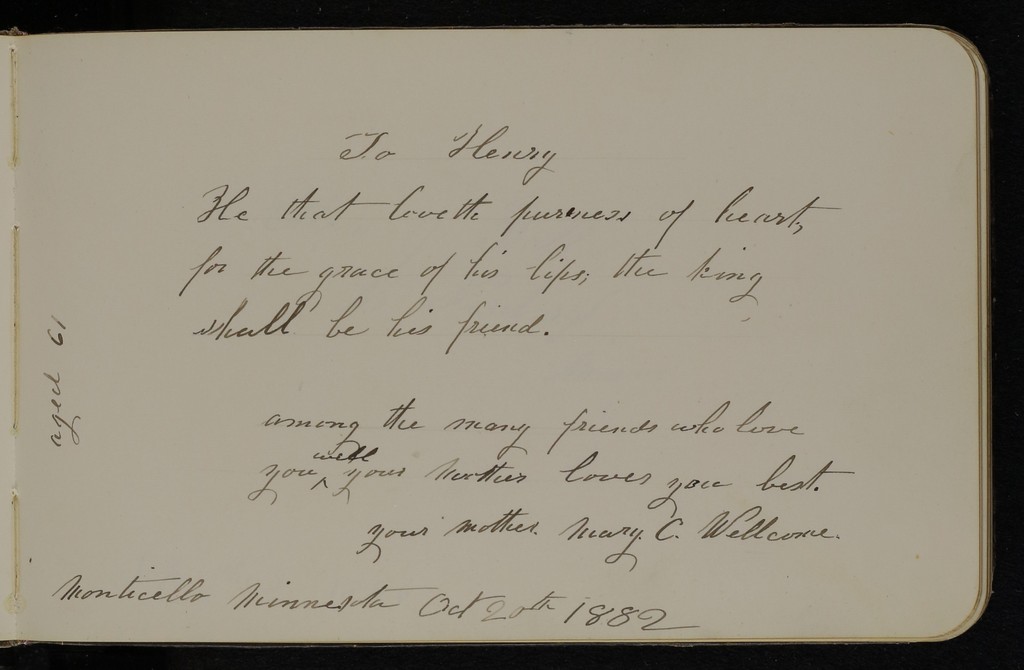 To Henry
He that loveth pureness of heart,
for the grace of his lips; the king
shall be his friend.
among the many friends who love
you ^ well your mother loves you best.
your mother. Mary. C. Wellcome.
Monticello Minnesota Oct 20th 1882
aged 61